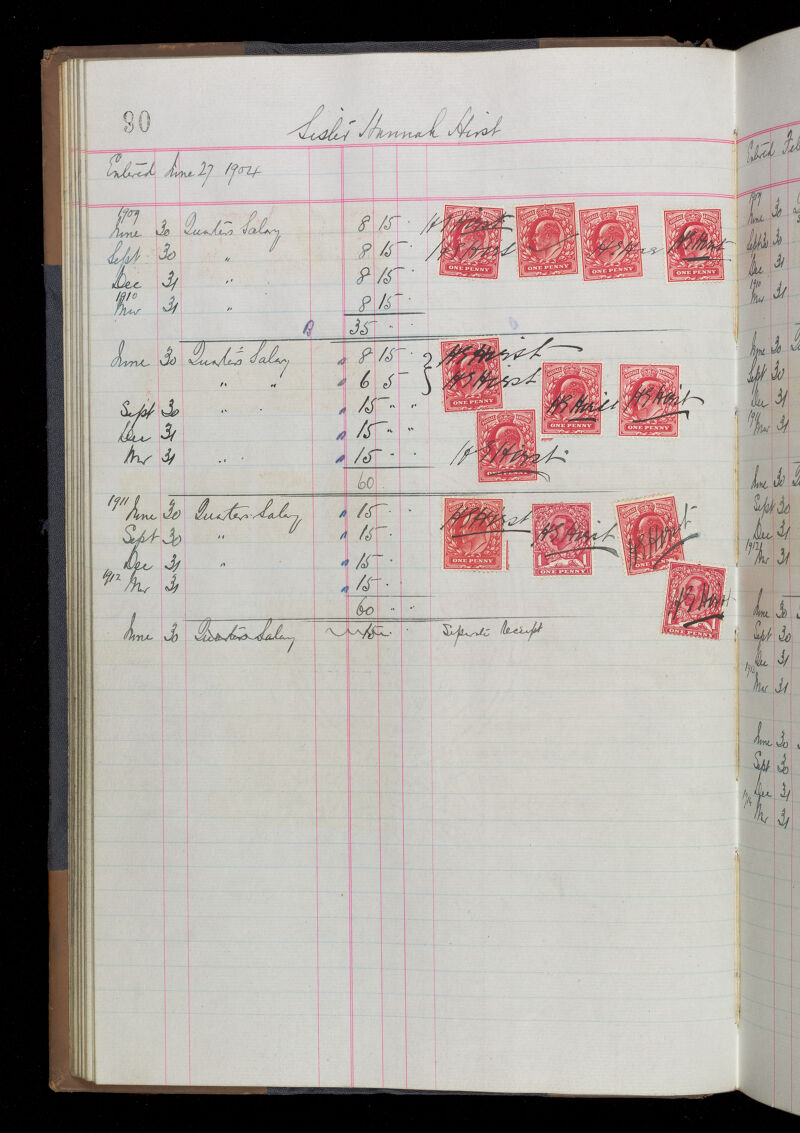 30
Sister Hannah Hirst
Entered June 27 1904
1909
June 30 Quarters Salary 8 15 · H S Hirst
Sept 30 " 8 15 · H S Hirst H S Hirst H S Hirst
Dec 31 " 8 15 ·
1910
Mar 31 " 8 15 ·
B 35 · ·
June 30 Quarter's Salary " 8 15 · } H S Hirst
" " " 6 5 · } H S Hirst
Sept 30 " · " 15 " " H S Hirst H S Hirst
Dec 31 " 15 " "
Mar 31 " · " 15 · · H S Hirst
60
1911 June 30 Quarters Salary " 15 · · H S Hirst
Sept 30 " " 15 · H S Hirst H S Hirst
Dec 31 " " 15 ·
1912 Mar 31 " 15 · H S Hirst
60 " "
June 30 Quarters Salary 15 · Separate Receipt
ONE PENNY
ONE PENNY
ONE PENNY
ONE PENNY
ONE PENNY
ONE PENNY
ONE PENNY
ONE PENNY
ONE PENNY
ONE PENNY
ONE PENNY
ONE PENNY
Entered
1909
June 30
Sept 30
Dec 31
1910
Mar 31
June 30
Sept 30
Dec 31
Mar 31
June 30
Sept 30
Dec 31
1912
Mar 31
June 30
Sept 30
Dec 31
Mar 31
June 30
Sept 30
Dec 31
1914
Mar 31